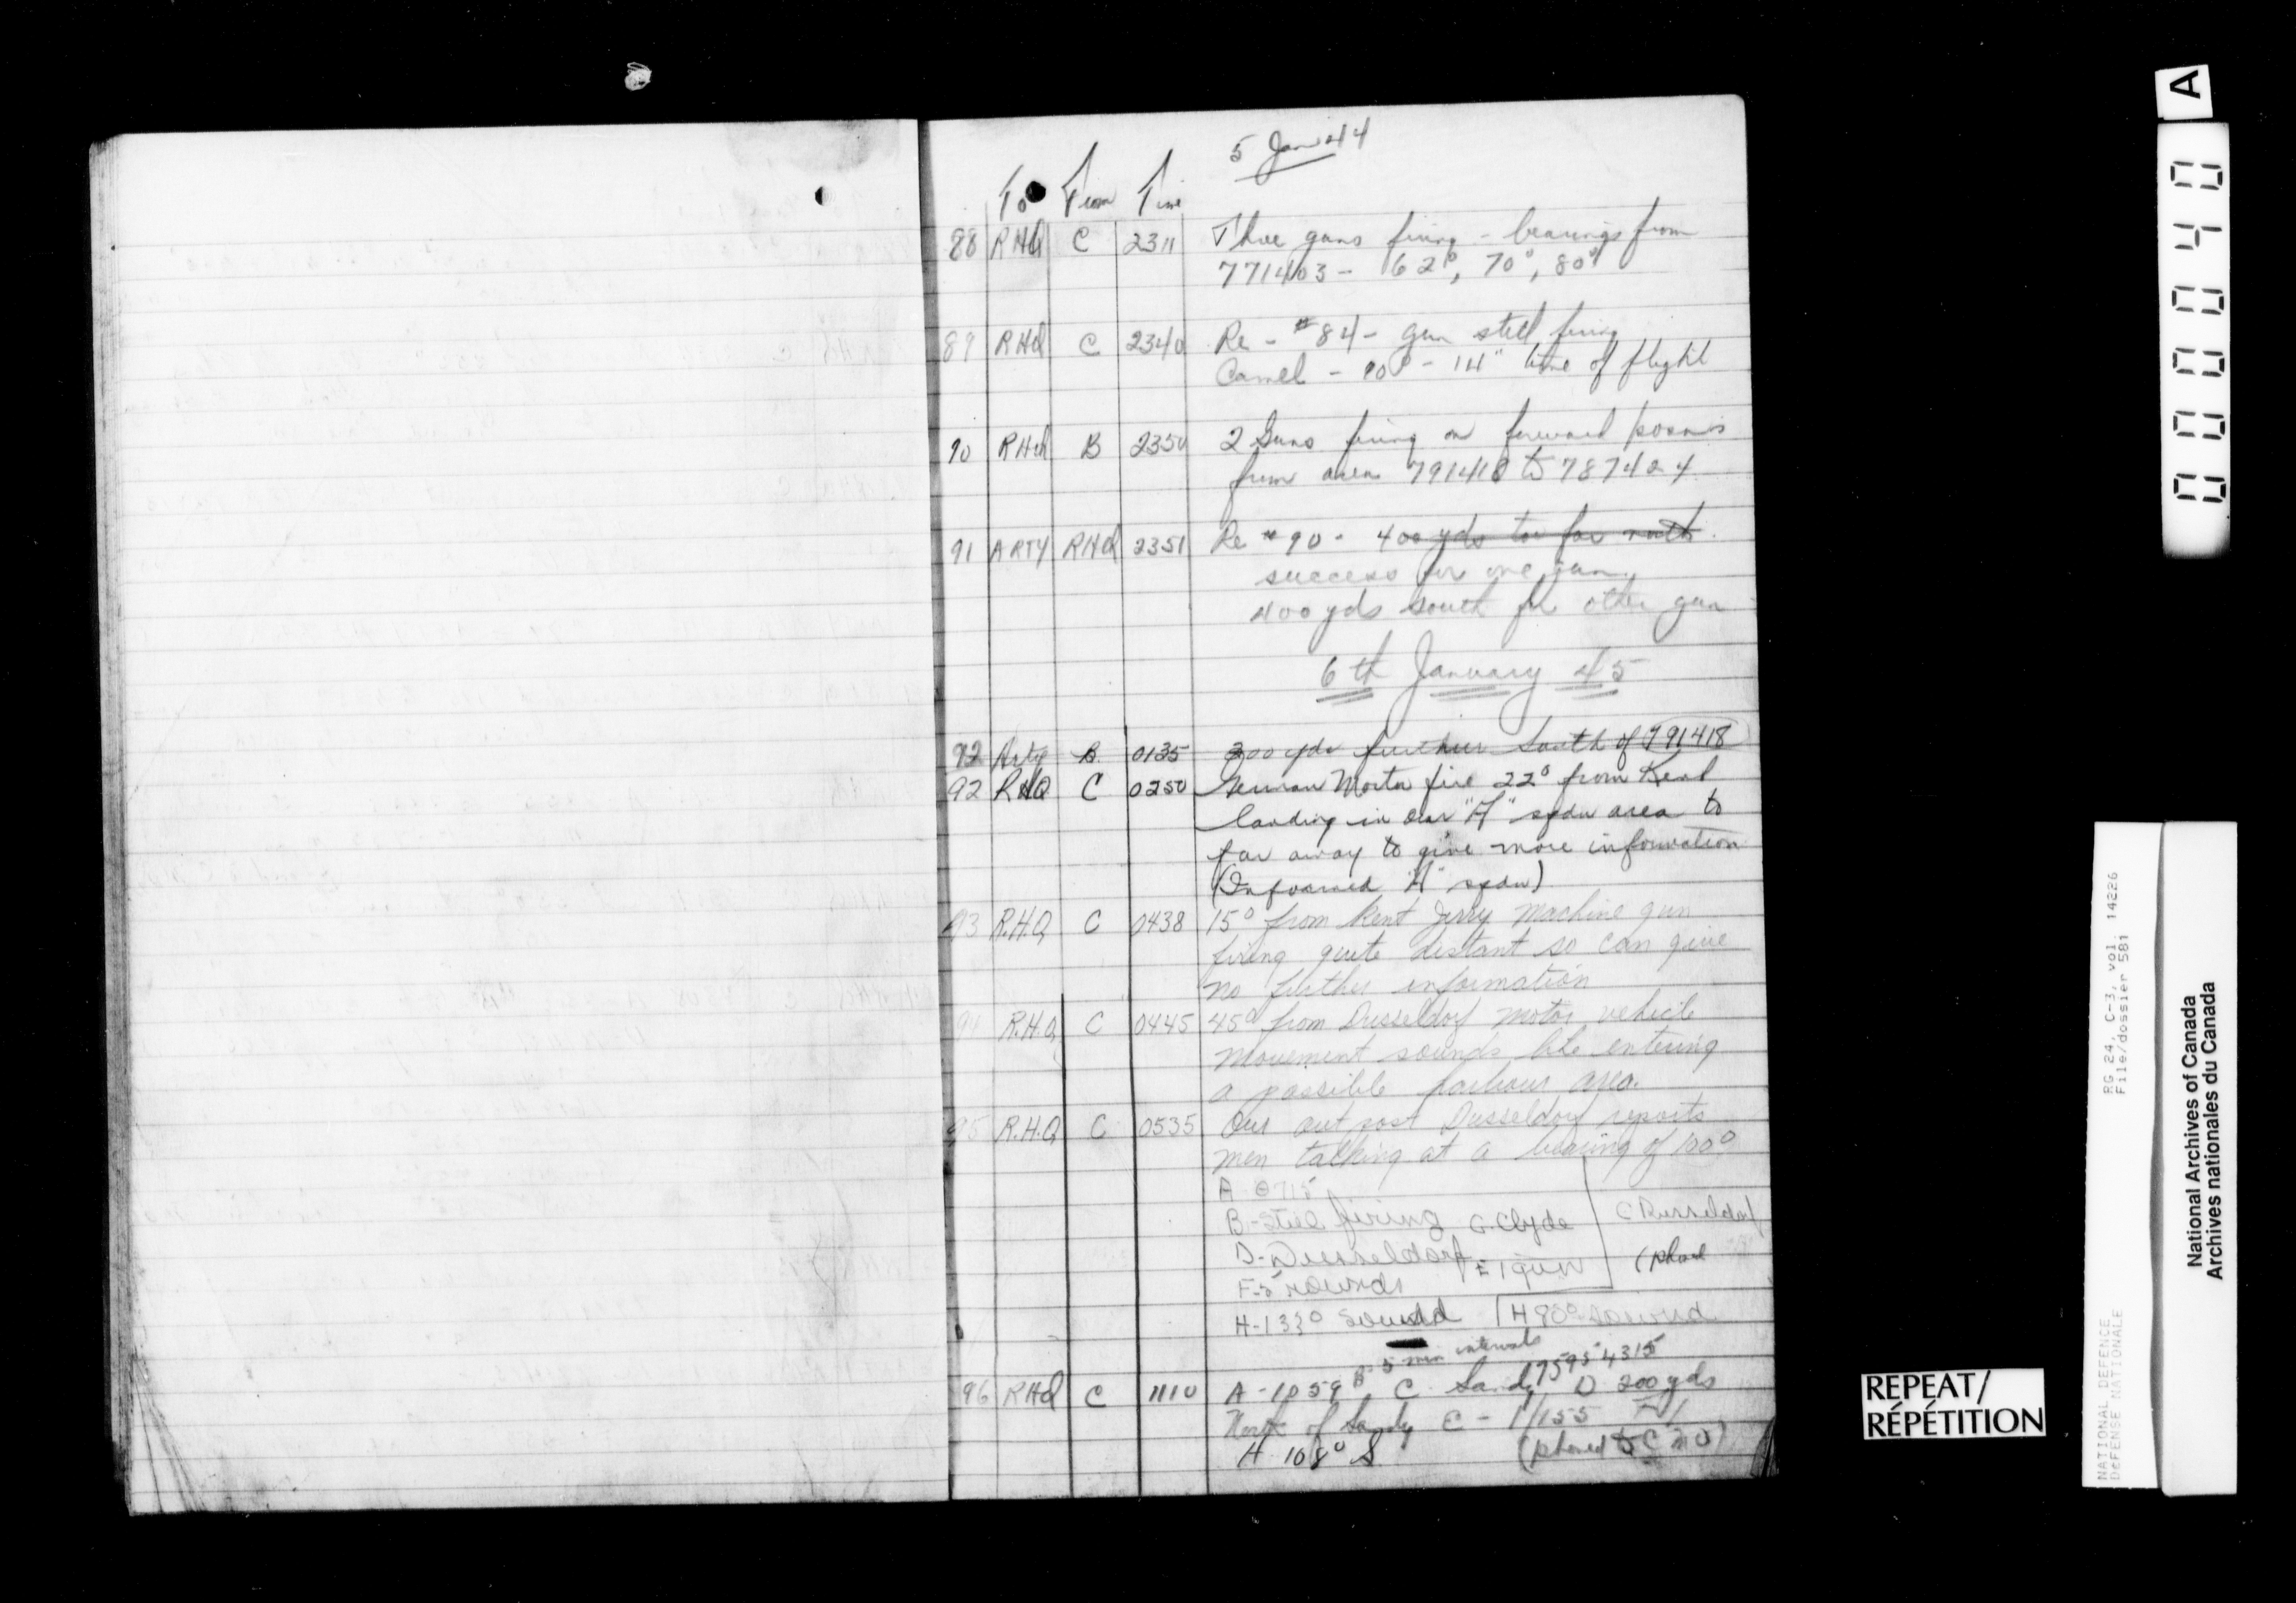 5 Jan 44
To From Time
88 RHQ C 2311 Three guns firing - bearings from
771403 - 62°, 70°, 80°
89 RHQ C 2340 Re - #84 - gun still firing
Camel - 90° - 14" time of flight
90 RHQ B 2350 2 Guns firing on forward posns
from area 791418 to 787424
91 ARTY RHQ 2351 Re #90 - 400 yds too far north.
success for one gun
400 yds south for other gun
6th January 45
92 Arty B. 0135 300 yds further South of 791418
92 RHQ C 0250 German Mortar fire 22° from Kent
landing in our "A" sqdn area to
far away to give more information
(Informed "A" sqdn)
93 R.H.Q C 0438 15° from Kent Jerry machine gun
firing quite distant so can give
no further information
94 R.H.Q C 0445 45° from Dusseldorf motor vehicle
movement sounds like entering
a possible harbour area.
95 R.H.Q C 0535 Our out post Dusseldorf reports
men talking at a bearing of 100°
A 0715
B-Still firing G. Clyde C Dusseldorf
D-Duesseldorf E 1 gun (phone
F-5 rounds
H-133° Sound H 980 sound
B 5 min intervals
96 RHQ C 1110 A-1059, C Sandy 7595 4315 D 200 yds
North of Sandy E - 1/155 F 1
H 108° S (phoned to C M O)
A
0000040
REPEAT/
RÉPÉTITION
NATIONAL DEFENCE
DEFENSE NATIONALE
RG 24, C-3, vol. 14226
File/dossier 581
National Archives of Canada
Archives nationales du Canada